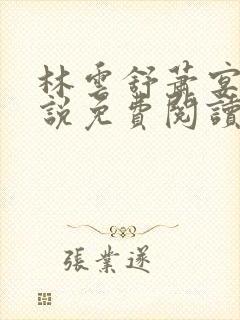 林雲舒蕭宴
說免費閱讀
張業遂